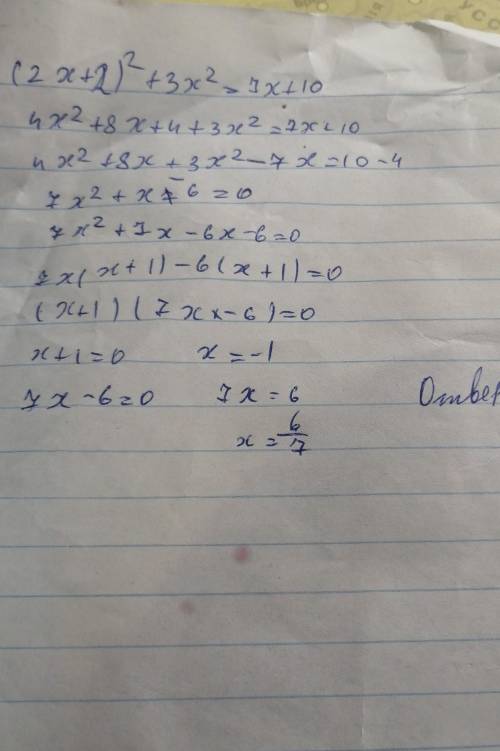 (2x+2)² + 3x² = 7x+10
4x² + 8x + 4 + 3x² = 7x + 10
4x² + 8x + 3x² - 7x = 10 - 4
7x² + x - 6 = 0
7x² + 7x - 6x - 6 = 0
7x(x+1) - 6(x+1) = 0
(x+1)(7x - 6) = 0
x+1=0 x = -1
7x - 6 = 0 7x = 6 Ответ
x = 6/7